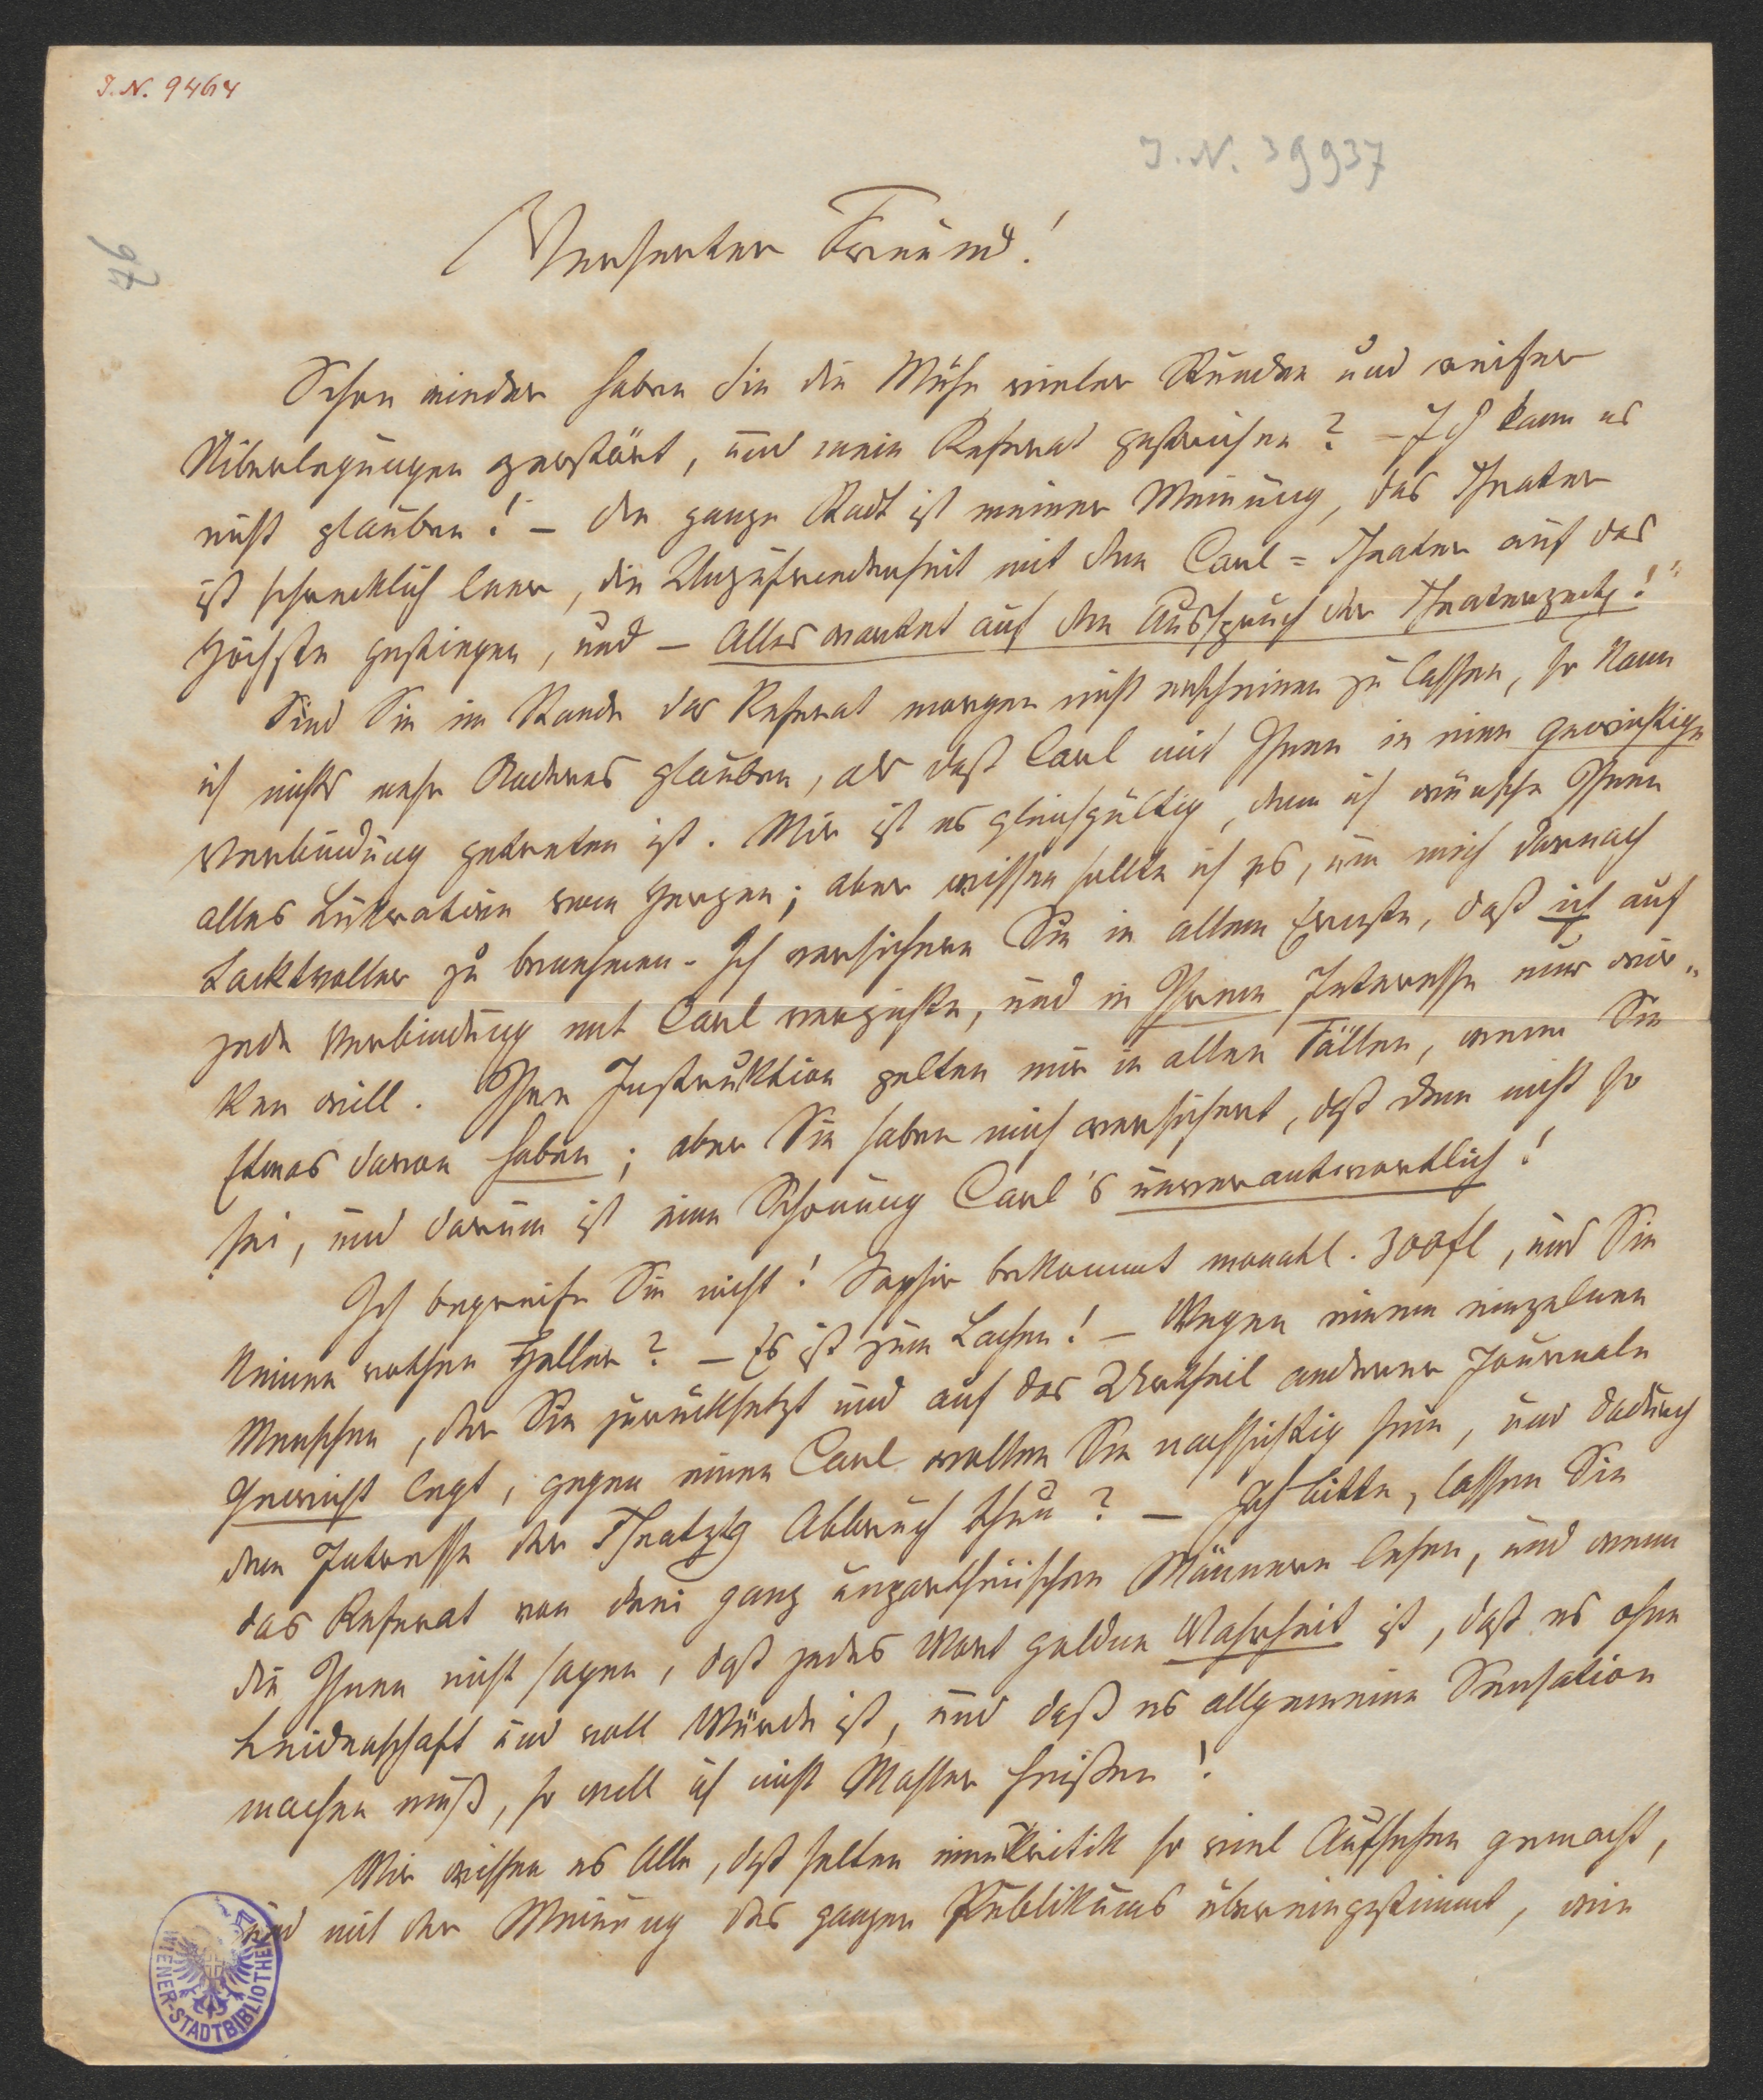 I. N. 9464
I. N. 39937
97
Verehrter Freund!
Schon wieder haben Sie die Mühe vieler Stunden und reicher
Überlegungen zerstört, und mein Referat gestrichen? – Ich kann es
nicht glauben! – Die ganze Stadt ist meiner Meinung, das Theater
ist schrecklich leer, die Unzufriedenheit mit dem Carl=Theater auf das
Höchste gestiegen, und – Alles wartet auf den Ausspruch der Theaterzeitg!"
Sind Sie im Stande das Referat morgen nicht erscheinen zu lassen, so kann
ich nichts mehr Anderes glauben, als daß Carl mit Ihnen in eine gewichtige
Verbindung getreten ist. Mir ist es gleichgültig, denn ich wünsche Ihnen
alles Lukrative vom Herzen; aber wissen sollte ich es, um mich darnach
taktvoller zu benehmen. Ich versichere Sie in allem Ernste, daß ich auf
jede Verbindung mit Carl verzichte, und in Ihrem Interesse nur wir„
ken will. Ihre Instruktion gelten mir in allen Fällen, wenn Sie
Etwas davon haben; aber Sie haben mich versichert, daß dem nicht so
sei, und darum ist eine Schonung Carl's unverantwortlich!
Ich begreife Sie nicht! Saphir bekommt monatl. 300fl, und Sie
keinen rothen Heller? – Es ist zum Lachen! – Wegen einem einzelnen
Menschen, der Sie zurücksetzt und auf das Urtheil anderer Journale
Gewicht legt, gegen einen Carl wollen Sie nachsichtig sein, und dadurch
dem Interesse der Theatztg Abbruch thun? – Ich bitte, lassen Sie
das Referat von drei ganz unpartheiischen Männern lesen, und wenn
die Ihnen nicht sagen, daß jedes Wort goldne Wahrheit ist, daß es ohne
Leidenschaft und voll Würde ist, und daß es allgemeine Sensation
machen muß, so will ich nicht heißen!
Wir wissen es Alle, daß selten eine Kritik so viel Aufsehen gemacht,
und mit der Meinung des ganzen Publikums übereingestimmt, wie
WIENER-STADTBIBLIOTHEK